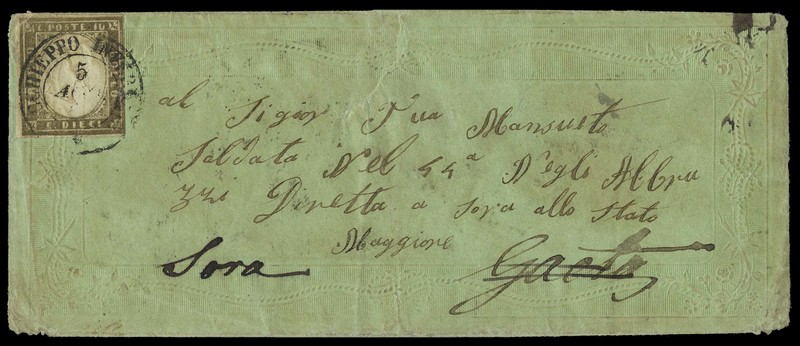 C. POSTE 10
5
C. DIECI
al Sigior Mansueto
Saldata Nel 44ª Negli Abbru
zzi Diretta a Sora allo Stato
Maggione
Sora Gaeta